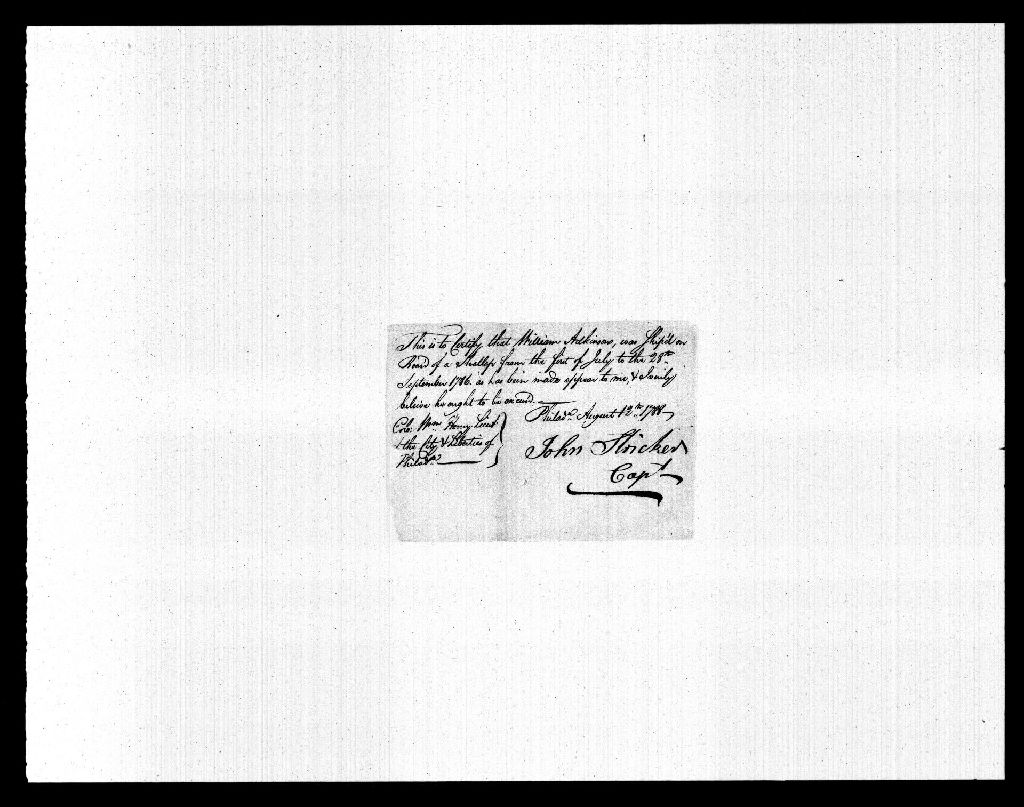 This is to Certify that William Atkinson, was Ship'd on
Board of a Shallop from the first of July to the 28th
September 1786. as has been made appear to me, & I verily
believe he ought to be excused.
Philada. August 12th. 1788
Colo. Wm Henry Lieut
the City & Liberties of
Philada
John Stricker
Capt